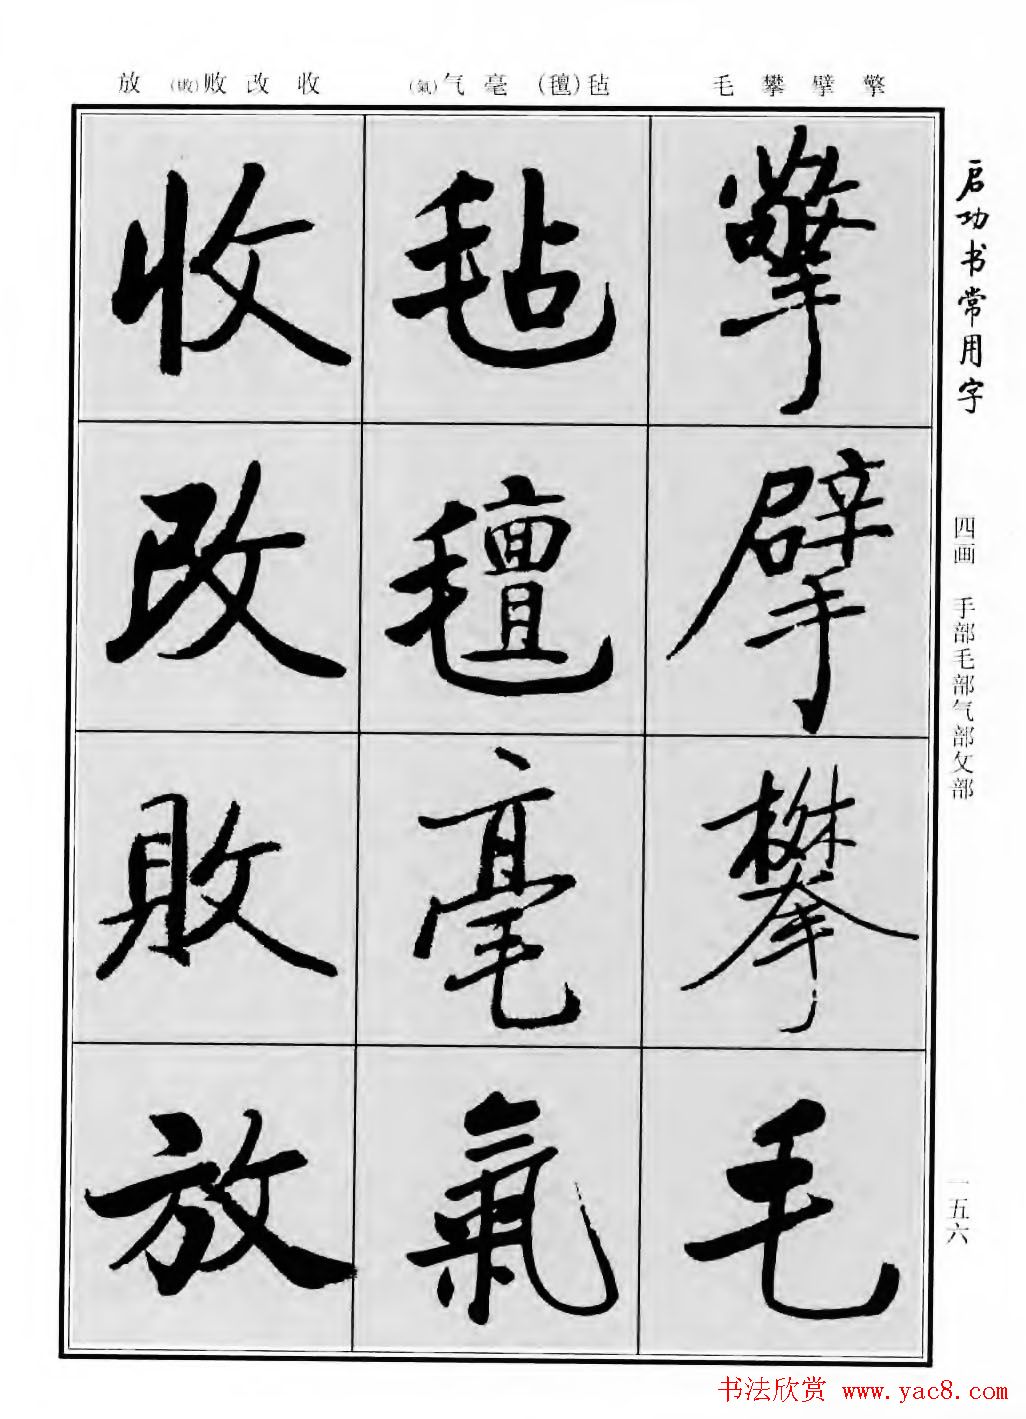 擎擘攀毛
毡(氊)毫气(氣)
收改败(敗)放
启功书常用字
四画 手部毛部气部攵部
一五六
擎
擘
攀
毛
毡
氊
毫
氣
收
改
敗
放
书法欣赏 www.yac8.com